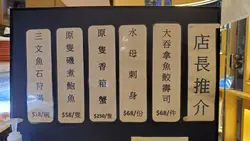 店長推介
大吞拿魚鮫壽司
$68/件
水母刺身
$68/份
原隻香箱蟹
$250/隻
原隻磯煮鮑魚
$58/隻
三文魚石狩